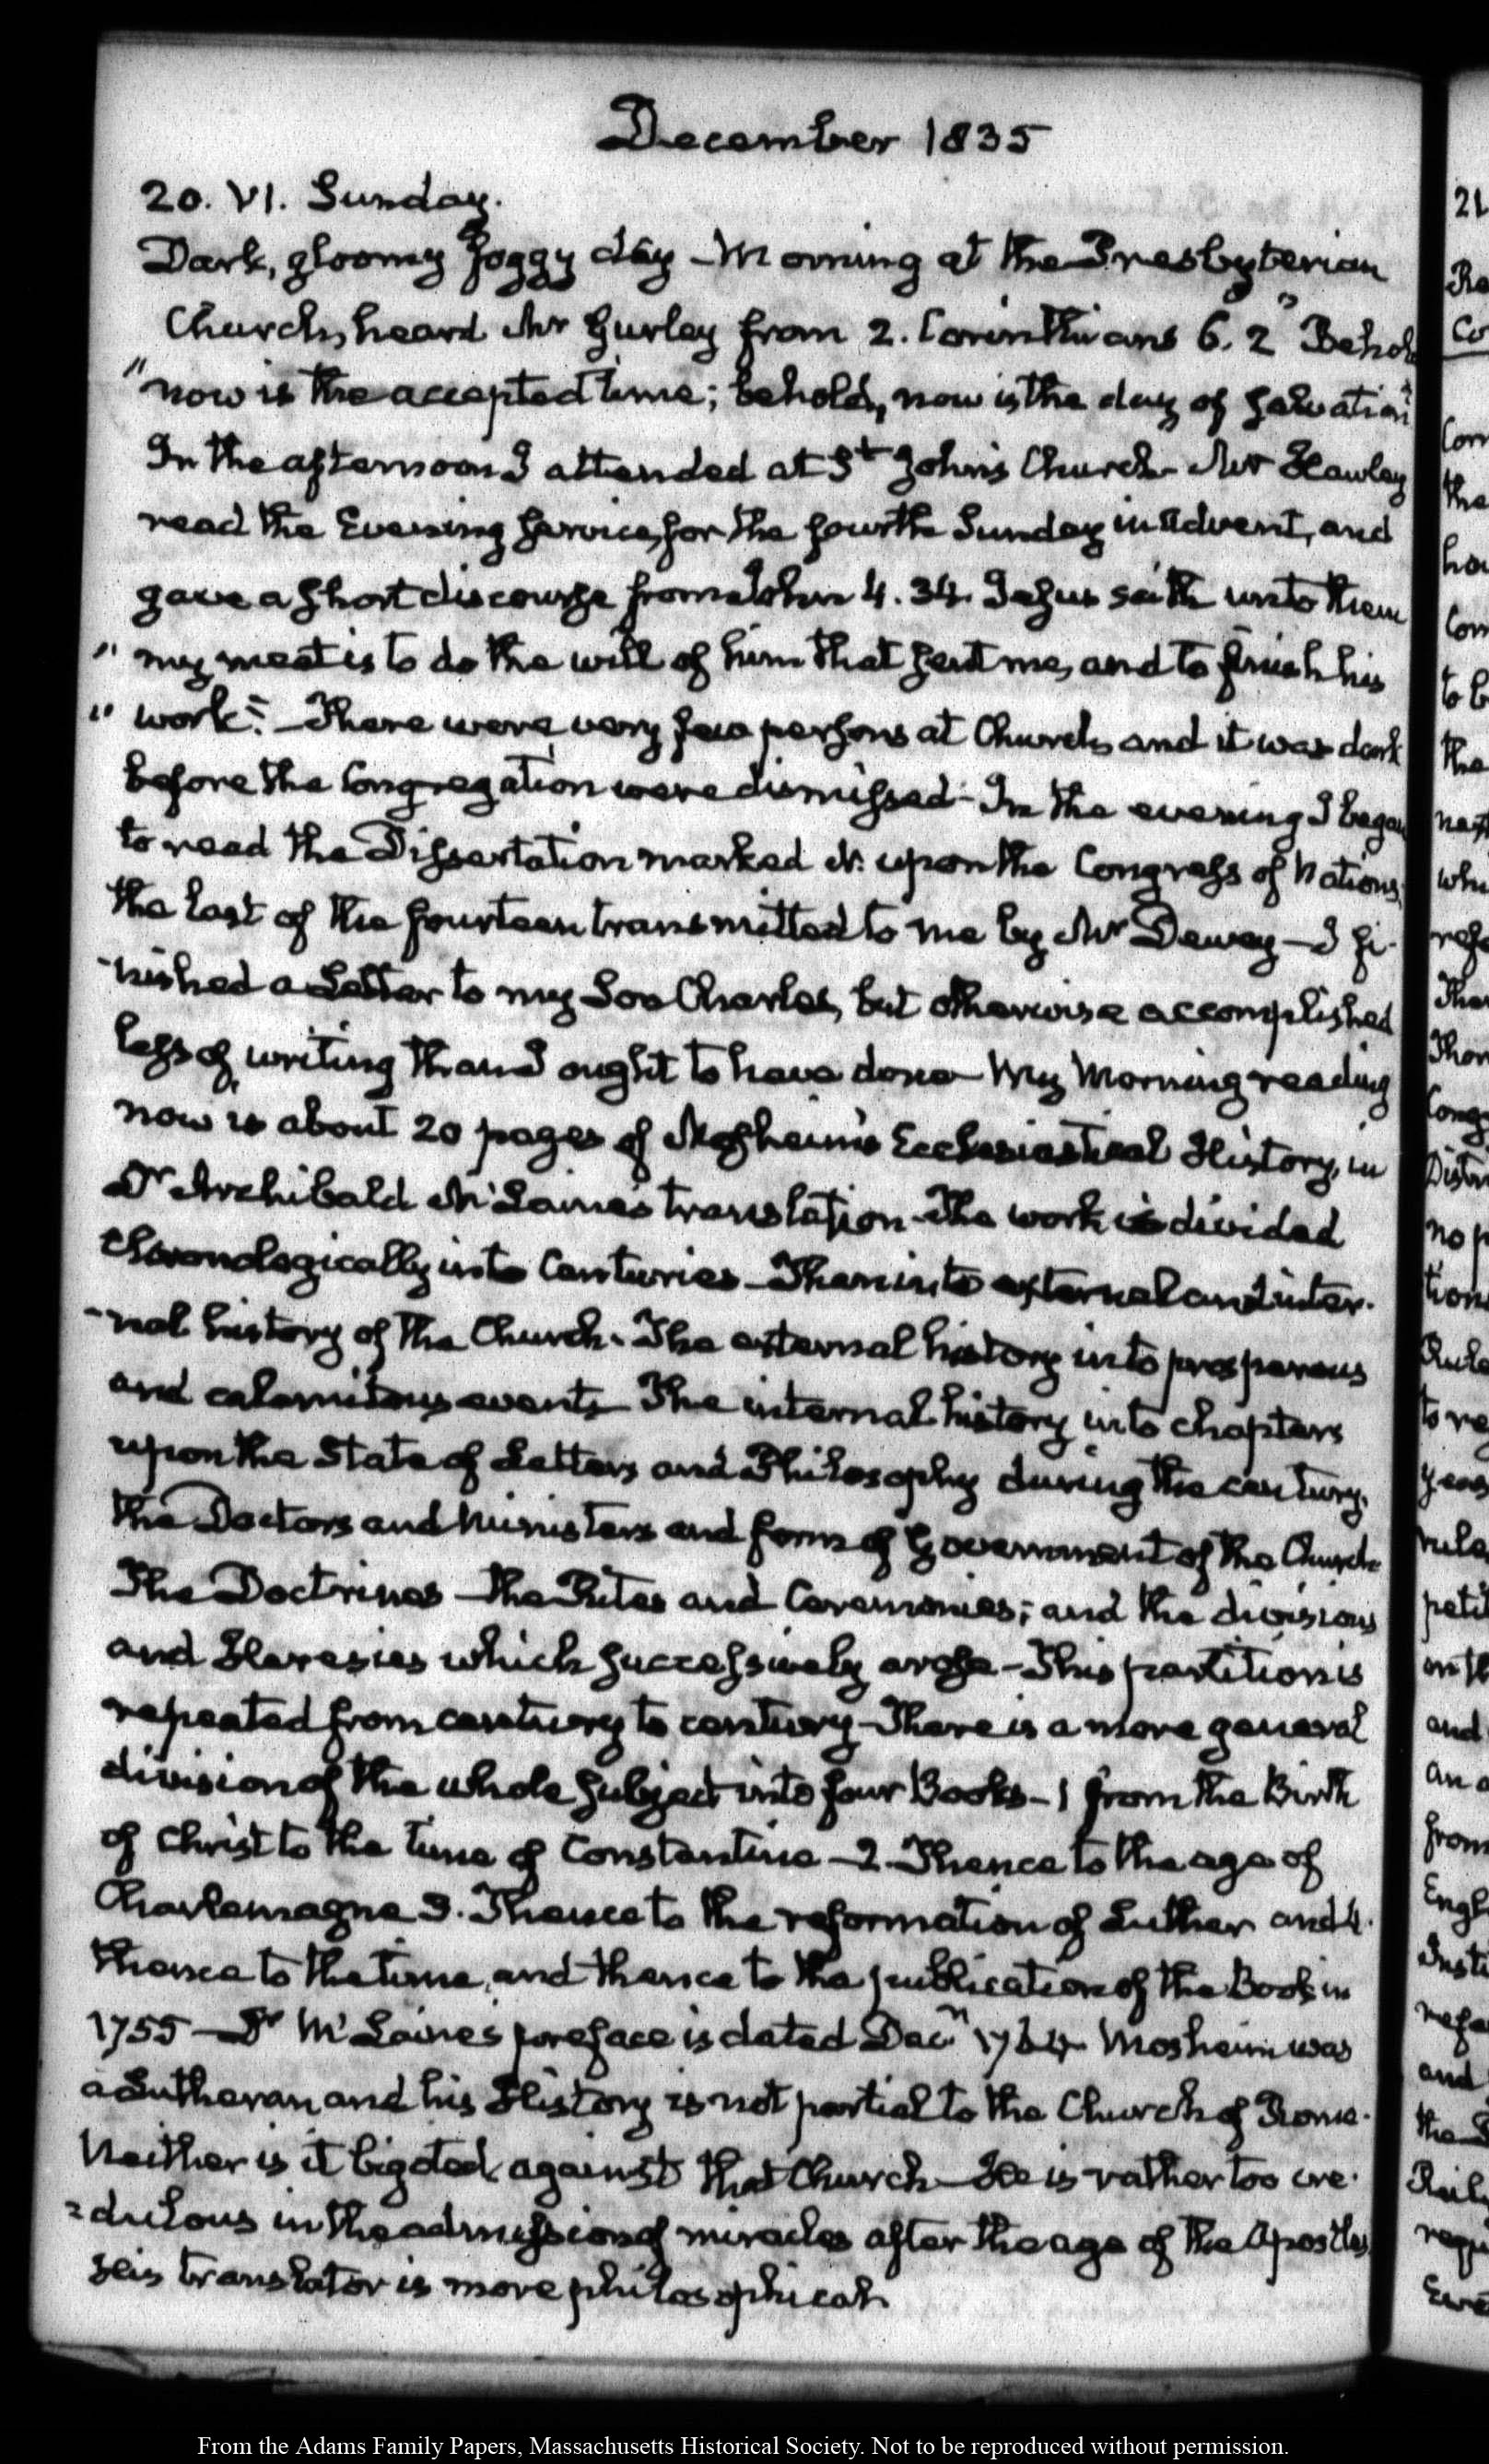 December 1835
20. VI. Sunday.
Dark, gloomy foggy day - Morning at the Presbyterian
Church, heard Mr Gurley from 2. Corinthians 6. 2 "Behold
"now is the accepted time; behold, now is the day of salvation"
In the afternoon I attended at St John's Church - Mr Hawley
read the Evening Service, for the fourth Sunday in Advent, and
gave a short discourse from John 4. 34. Jesus saith unto them
"my meat is to do the will of him that sent me, and to finish his
"work." - There were very few persons at Church, and it was dark
before the Congregation were dismissed - In the evening I began
to read the Dissertation marked N. upon the Congress of Nations,
the last of the fourteen transmitted to me by Mr Dewey - I fi-
-nished a Letter to my Son Charles, but otherwise accomplished
less of writing than I ought to have done - My Morning reading
now is about 20 pages of Mosheim's Ecclesiastical History, in
Dr Archibald McLaine's translation - The work is divided
chronologically into Centuries - Then into external and inter-
-nal history of the Church. The external history into prosperous
and calamitous events - The internal history into chapters
upon the State of Letters and Philosophy during the century,
the Doctors and Ministers and form of Government of the Church
The Doctrines - the Rites and Ceremonies; and the divisions
and Heresies which successively arose - This partition is
repeated from century to century - There is a more general
division of the whole subject into four Books - 1 from the Birth
of Christ to the time of Constantine - 2. Thence to the age of
Charlemagne 3. Thence to the reformation of Luther and 4.
thence to the time, and thence to the publication of the Book in
1755 - Dr McLaine's preface is dated Decr 1764. Mosheim was
a Lutheran, and his History is not partial to the Church of Rome.
Neither is it bigoted against that Church - He is rather too cre-
-dulous in the admission of miracles after the age of the Apostles,
His translator is more philosophical.
From the Adams Family Papers, Massachusetts Historical Society. Not to be reproduced without permission.